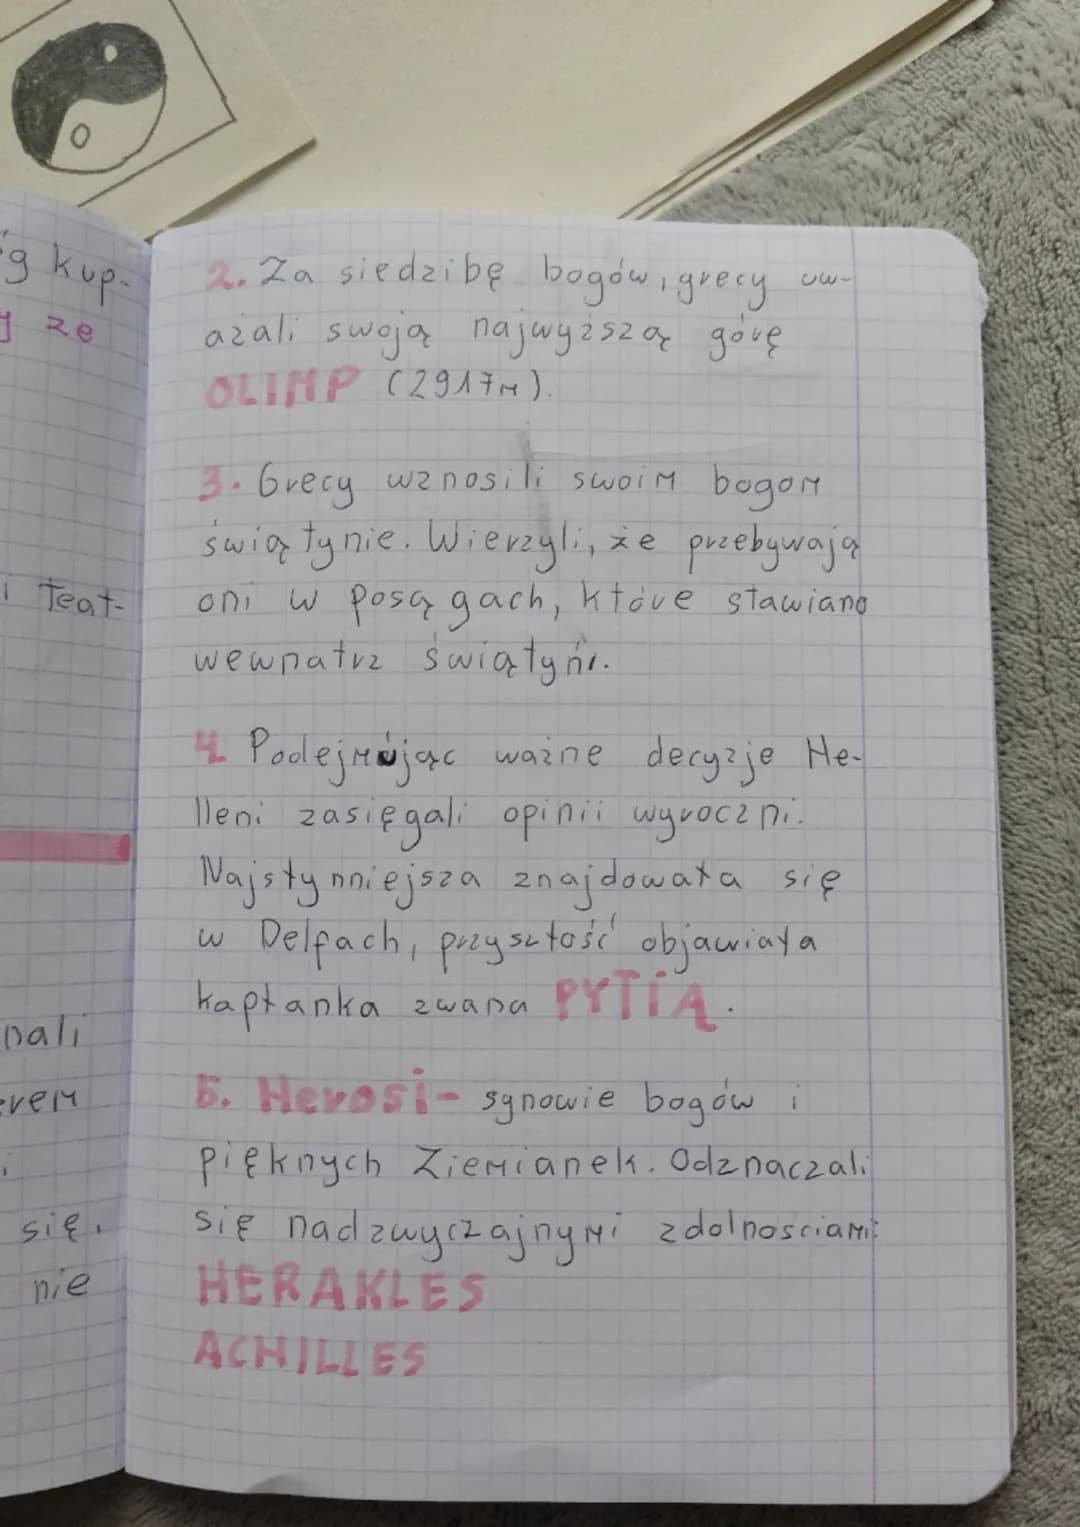 g kup-
ze
i teat-
nali
erem
się.
nie
2. Za siedzibę bogów, grecy uw-
ażali swoją najwyższą górę
OLIMP (2917m).
3. Grecy wznosili swoim bogom
świątynie. Wierzyli, że przebywają
oni w posągach, które stawiano
wewnatrz świątyni.
4. Podejmując ważne decyzje He-
lleni zasięgali opinii wyroczni.
Najsłynniejsza znajdowała się
w Delfach, przyszłość objawiała
kapłanka zwana PYTIĄ.
5. Herosi- synowie bogów i
pięknych Ziemianek. Odznaczali
się nadzwyczajnymi zdolnosciami:
HERAKLES
ACHILLES